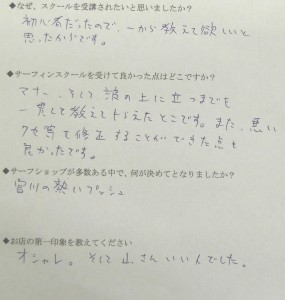 ◆なぜ、スクールを受講されたいと思いましたか？
初心者だったので、一から教えて欲しいと
思ったからです。
◆サーフィンスクールを受けて良かった点はどこですか？
マナー、そして波の上に立つまでを
一貫して教えてもらえたとこです。また、悪い
クセ等を修正することができた点も
良かったです。
◆サーフショップが多数ある中で、何が決めてとなりましたか？
宮川の熱いプッシュ
◆お店の第一印象を教えてください
オシャレ。そして山さんいい人でした。